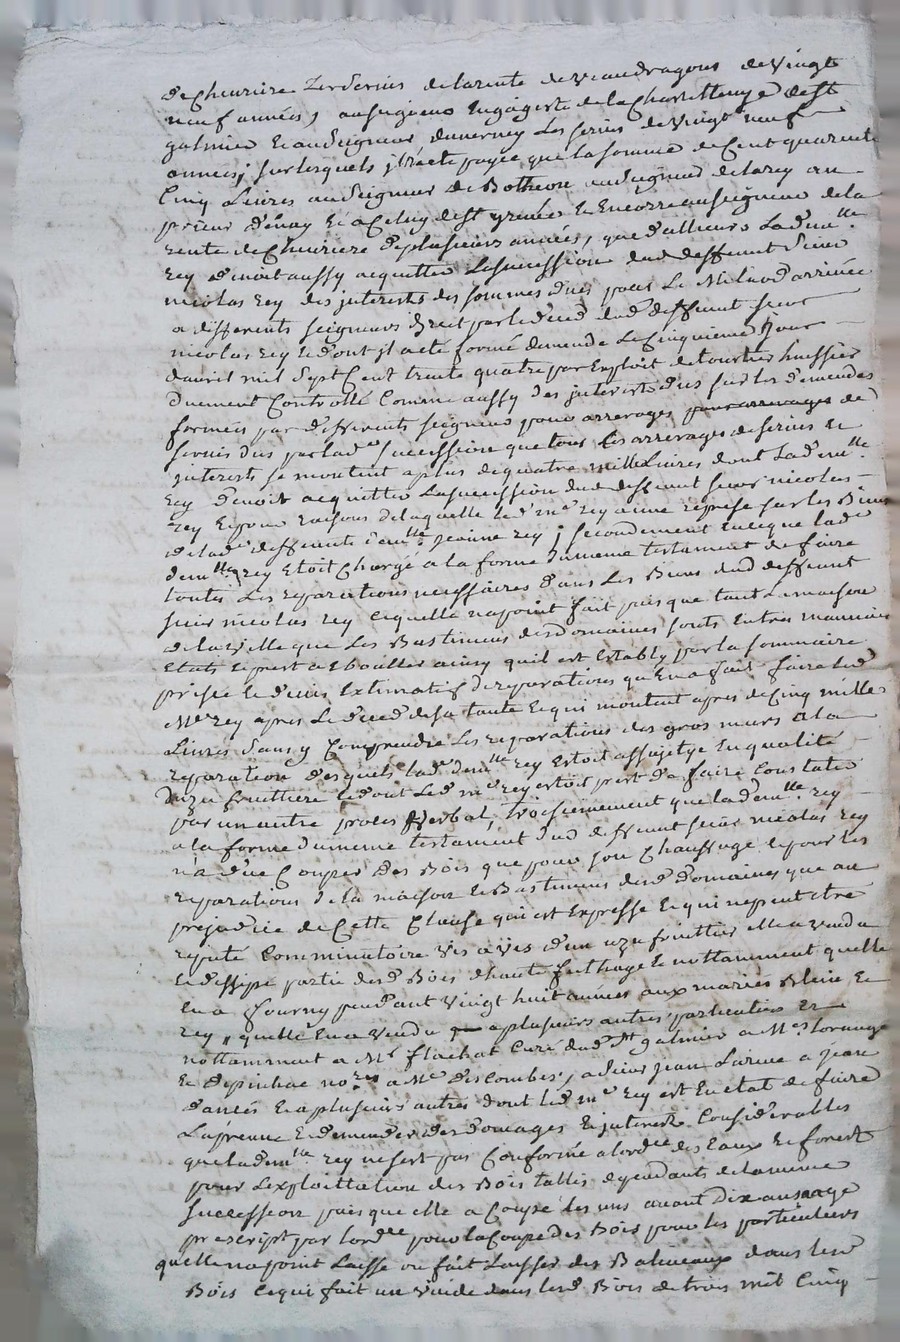 de Cheuriere Les Seruis de la rente de Veaudragons de Vingt
neuf années, au seigneur Engagiste de la Chastellenye de St
galmier Et au seigneur du verney Les seruis de Vingt neuf
années; sur lesquels jl na ete payee que la somme de Cent quarente
Cinq Liures au seigneur de Botheon au seigneur de la rey au
prieur d'Enay Et a Celuy de St Et Encorre au seigneur de la
rente de Cheuriere de plusieurs années, que d'allieurs Lad demlle
rey deuoit aussy acquitter La succession dud deffunt sieur
nicolas rey des jnterests des sommes dues pour Le Milaod arriuée
a differents seigneurs par le deced dud deffunt sieur
nicolas rey Et dont jl a ete formé demende Le Cinquieme Jour
dauril mil sept Cent trente quatre par Exploit de huissier
duement Controllé Comme aussy des jnterests dus sur les demendes
formées par differents seigneurs pour arrerages pour arrerages de
seruis dus par lad succession que tous les arrerages de seruis et
jnterests se montent a plus de quatre mille Liures dont Lad demlle
rey deuoit acquitter La succession dud deffunt sieur nicolas
rey Et pour raisons de laquelle led mr rey a une reprise sur les Biens
de lad deffunte demlle jeanne rey; secondement En ce que lad
demlle rey Etoit Chargé a la forme du meme testament de faire
toutes Les reparations necessaires dans Les Biens dud deffunt
sieur nicolas rey Ce quelle na point fait puis que tant La maison
de la ville que Les Bastimens des domaines sont En tres mauuais
Etats Et prest a Eboulles ainsy quil est Estably par la sommaire
prisée Et deuis Extimatif de reparations qu'En a fait faire led
Mr rey apres Le deced de sa tante Et qui montent a pres de Cinq mille
Liures sans y Comprendre Les reparations des gros murs a la
reparation desquels lad demlle rey Estoit assujetye En qualité
duzu fruittiere Et dont Led mr rey estoit prest de faire Constater
par un autre proces Verbal, troisiemement que lad demlle rey
a la forme du meme testament dud deffunt sieur nicolas rey
n'a due Couper des Bois que pour son Chauffage Et pour les
reparations de la maison Et Bastimens desd domaines que au
prejudice de Cette Clause qui est Expresse Et qui ne peut etre
reputé Comminatoire Vis a Vis d'un uzu fruittier elle a vendu
Et dissipé partie desd Bois d'haute futhaye Et nottamment quelle
En a fourny pendant Vingt huit années aux mariés Bleine Et
rey, quelle En a vendu a plusieurs autres particuliers Et
nottamment a Mr flachat Curé dud St galmier a Mes Lorange
Et depinhac nores a Me descombes, a sieur jean Larue a jean
dancés Et a plusieurs autres dont led mr rey est En etat de faire
La preuue Et demender des domages Et jnterests Considerables
que lad demlle rey ne sest pas Conformé a lordce des Eaux Et forest
pour Lexploittation des Bois tallis dependants de la meme
succession puis que elle a Coupé les uns auant dix ans aage
prescript par lordce pour la Coupe des Bois pour les particuliers
quelle na point Laissé ou fait Laisser des Baliueaux dans lesd
Bois Ce qui fait un vuide dans lesd Bois de trois mil Cinq